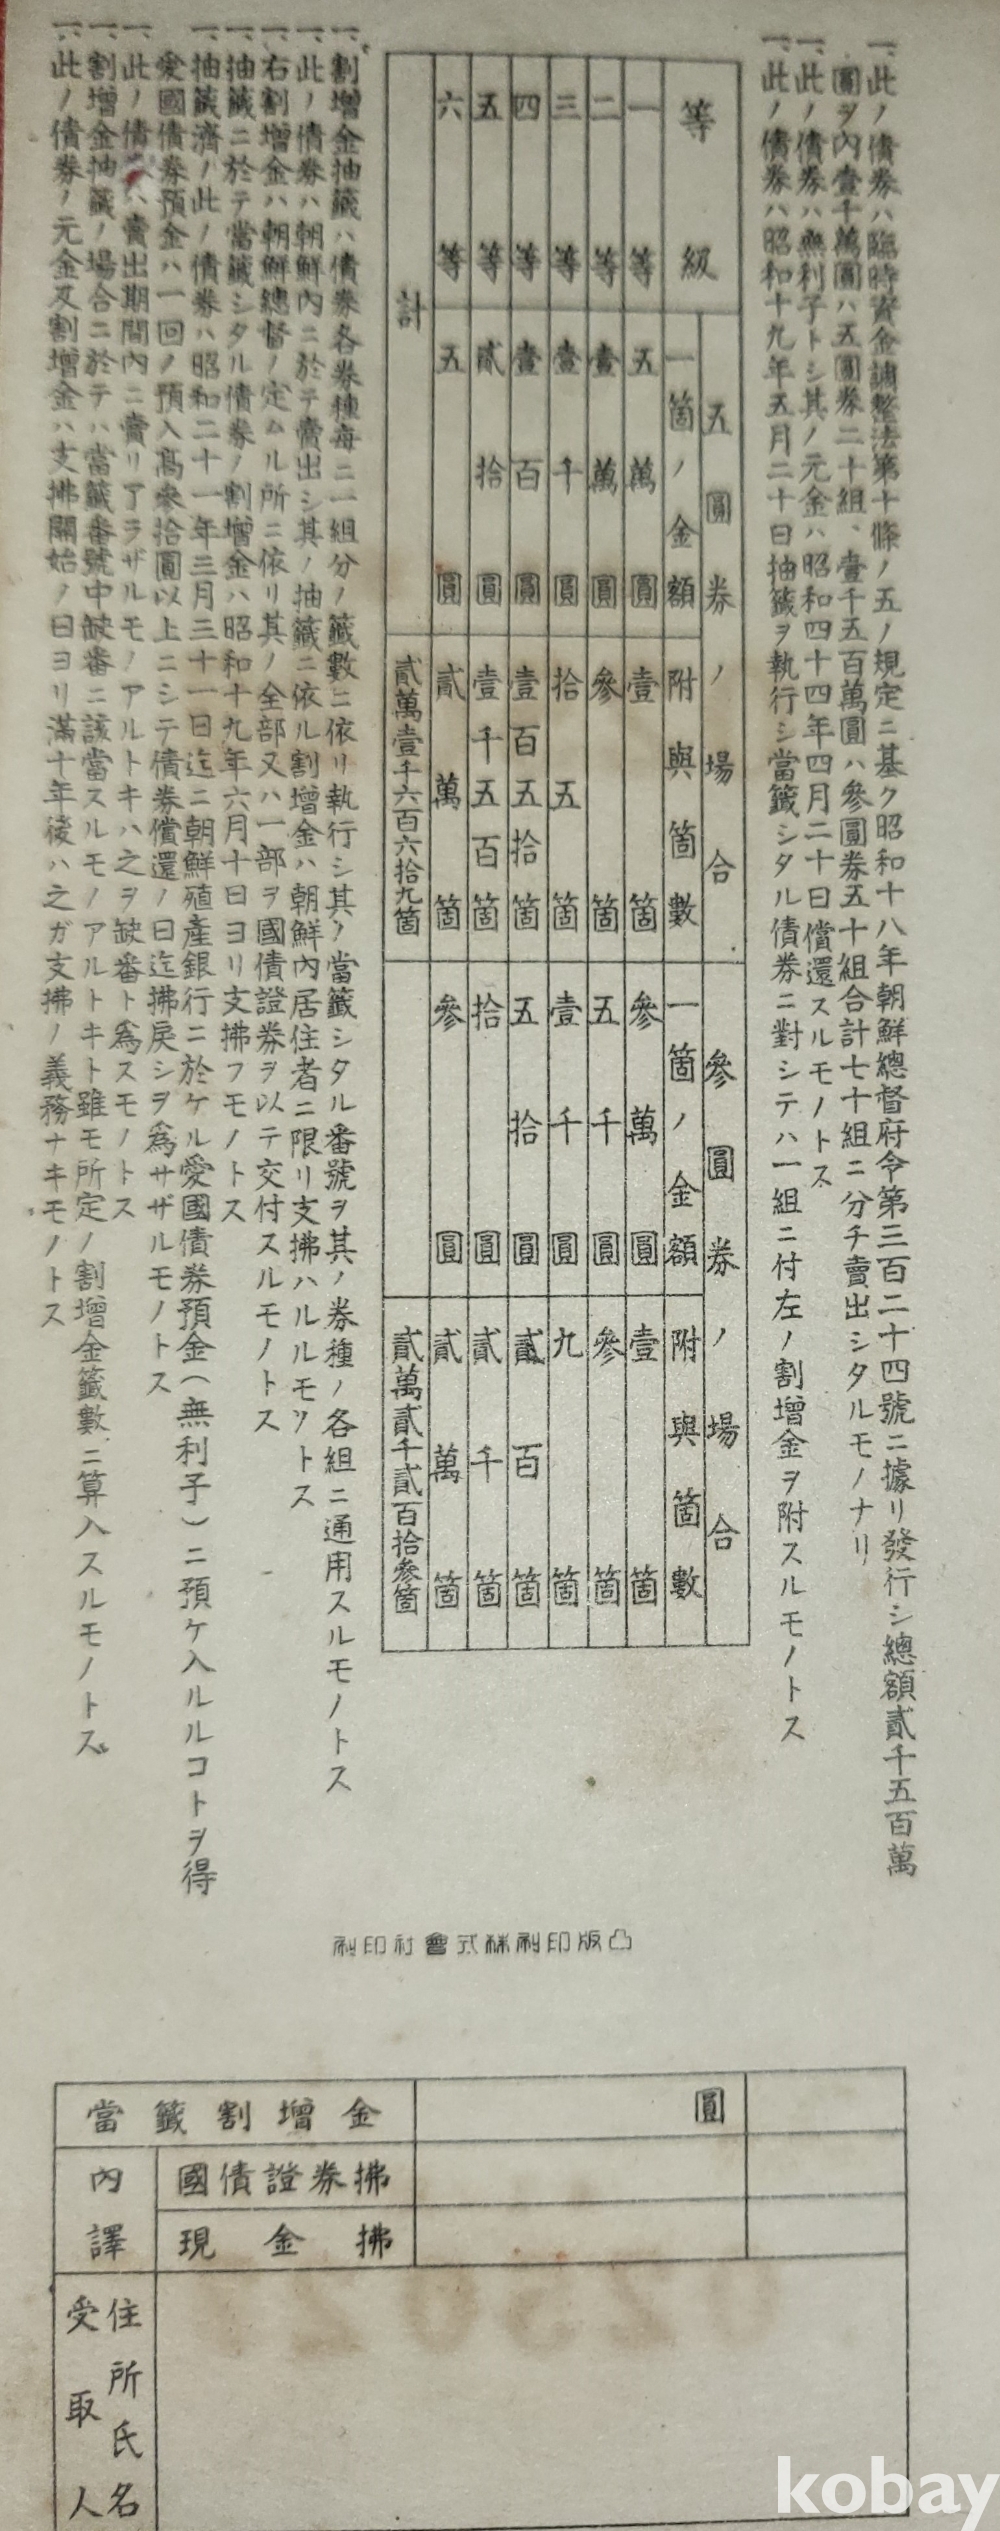 一、此ノ債券ハ臨時資金調整法第十條ノ五ノ規定ニ基ク昭和十八年朝鮮總督府令第三百二十四號ニ據リ發行シ總額貳千五百萬
圓ヲ內壹千萬圓ハ五圓券二十組、壹千五百萬圓ハ參圓券五十組合計七十組ニ分チ賣出シタルモノナリ
一、此ノ債券ハ無利子トシ其ノ元金ハ昭和四十四年四月二十日償還スルモノトス
一、此ノ債券ハ昭和十九年五月二十日抽籤ヲ執行シ當籤シタル債券ニ對シテハ一組ニ付左ノ割增金ヲ附スルモノトス
等級 五圓券ノ場合 參圓券ノ場合
一箇ノ金額 附與箇數 一箇ノ金額 附與箇數
一等 五萬圓 壹箇 參萬圓 壹箇
二等 壹萬圓 參箇 五千圓 參箇
三等 壹千圓 拾五箇 壹千圓 九箇
四等 壹百圓 壹百五拾箇 五拾圓 貳百箇
五等 貳拾圓 壹千五百箇 拾圓 貳千箇
六等 五圓 貳萬箇 參圓 貳萬箇
計 貳萬壹千六百六拾九箇 貳萬貳千貳百拾參箇
一、割增金抽籤ハ債券各券種每ニ一組分ノ籤數ニ依リ執行シ其ノ當籤シタル番號ヲ其ノ券種ノ各組ニ通用スルモノトス
一、此ノ債券ハ朝鮮內ニ於テ賣出シ其ノ抽籤ニ依ル割增金ハ朝鮮內居住者ニ限リ支拂ハルルモノトス
一、右割增金ハ朝鮮總督ノ定ムル所ニ依リ其ノ全部又ハ一部ヲ國債證券ヲ以テ交付スルモノトス
一、抽籤ニ於テ當籤シタル債券ノ割增金ハ昭和十九年六月十日ヨリ支拂フモノトス
一、抽籤濟ノ此ノ債券ハ昭和二十一年三月三十一日迄ニ朝鮮殖產銀行ニ於ケル愛國債券預金(無利子)ニ預ケ入ルルコトヲ得
愛國債券預金ハ一回ノ預入高參拾圓以上ニシテ債券償還ノ日迄拂戾シヲ爲サザルモノトス
一、此ノ債 ハ賣出期間內ニ賣リアラザルモノアルトキハ之ヲ缺番ト爲スモノトス
一、割增金抽籤ノ場合ニ於テハ當籤番號中缺番ニ該當スルモノアルトキト雖モ所定ノ割增金籤數ニ算入スルモノトス
一、此ノ債券ノ元金及割增金ハ支拂開始ノ日ヨリ滿十年後ハ之ガ支拂ノ義務ナキモノトス
刷印社會式株刷印版凸
當籤割增金 圓
內譯 國債證券拂
現金拂
受取人 住所氏名
kobay